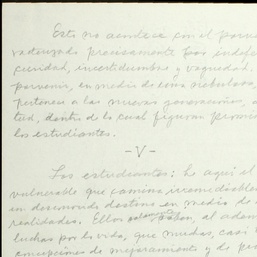 Esto no acontece con el porve
radeado precisamente por indefi
cicidad, incertidumbre y vaguedad.
porvenir, en medio de esa nebulosa,
pertenece a las nuevas generaciones, a
tud, dentro de la cual figuran promi
los estudiantes.
-V-
Los estudiantes: he aquí el
vulnerable que camina irremediable
un desconocido destino en medio de
realidades. Ellos solamente saben, al adem
luchas por la vida, que muchas, casi
concepciones de mejoramiento y de pe